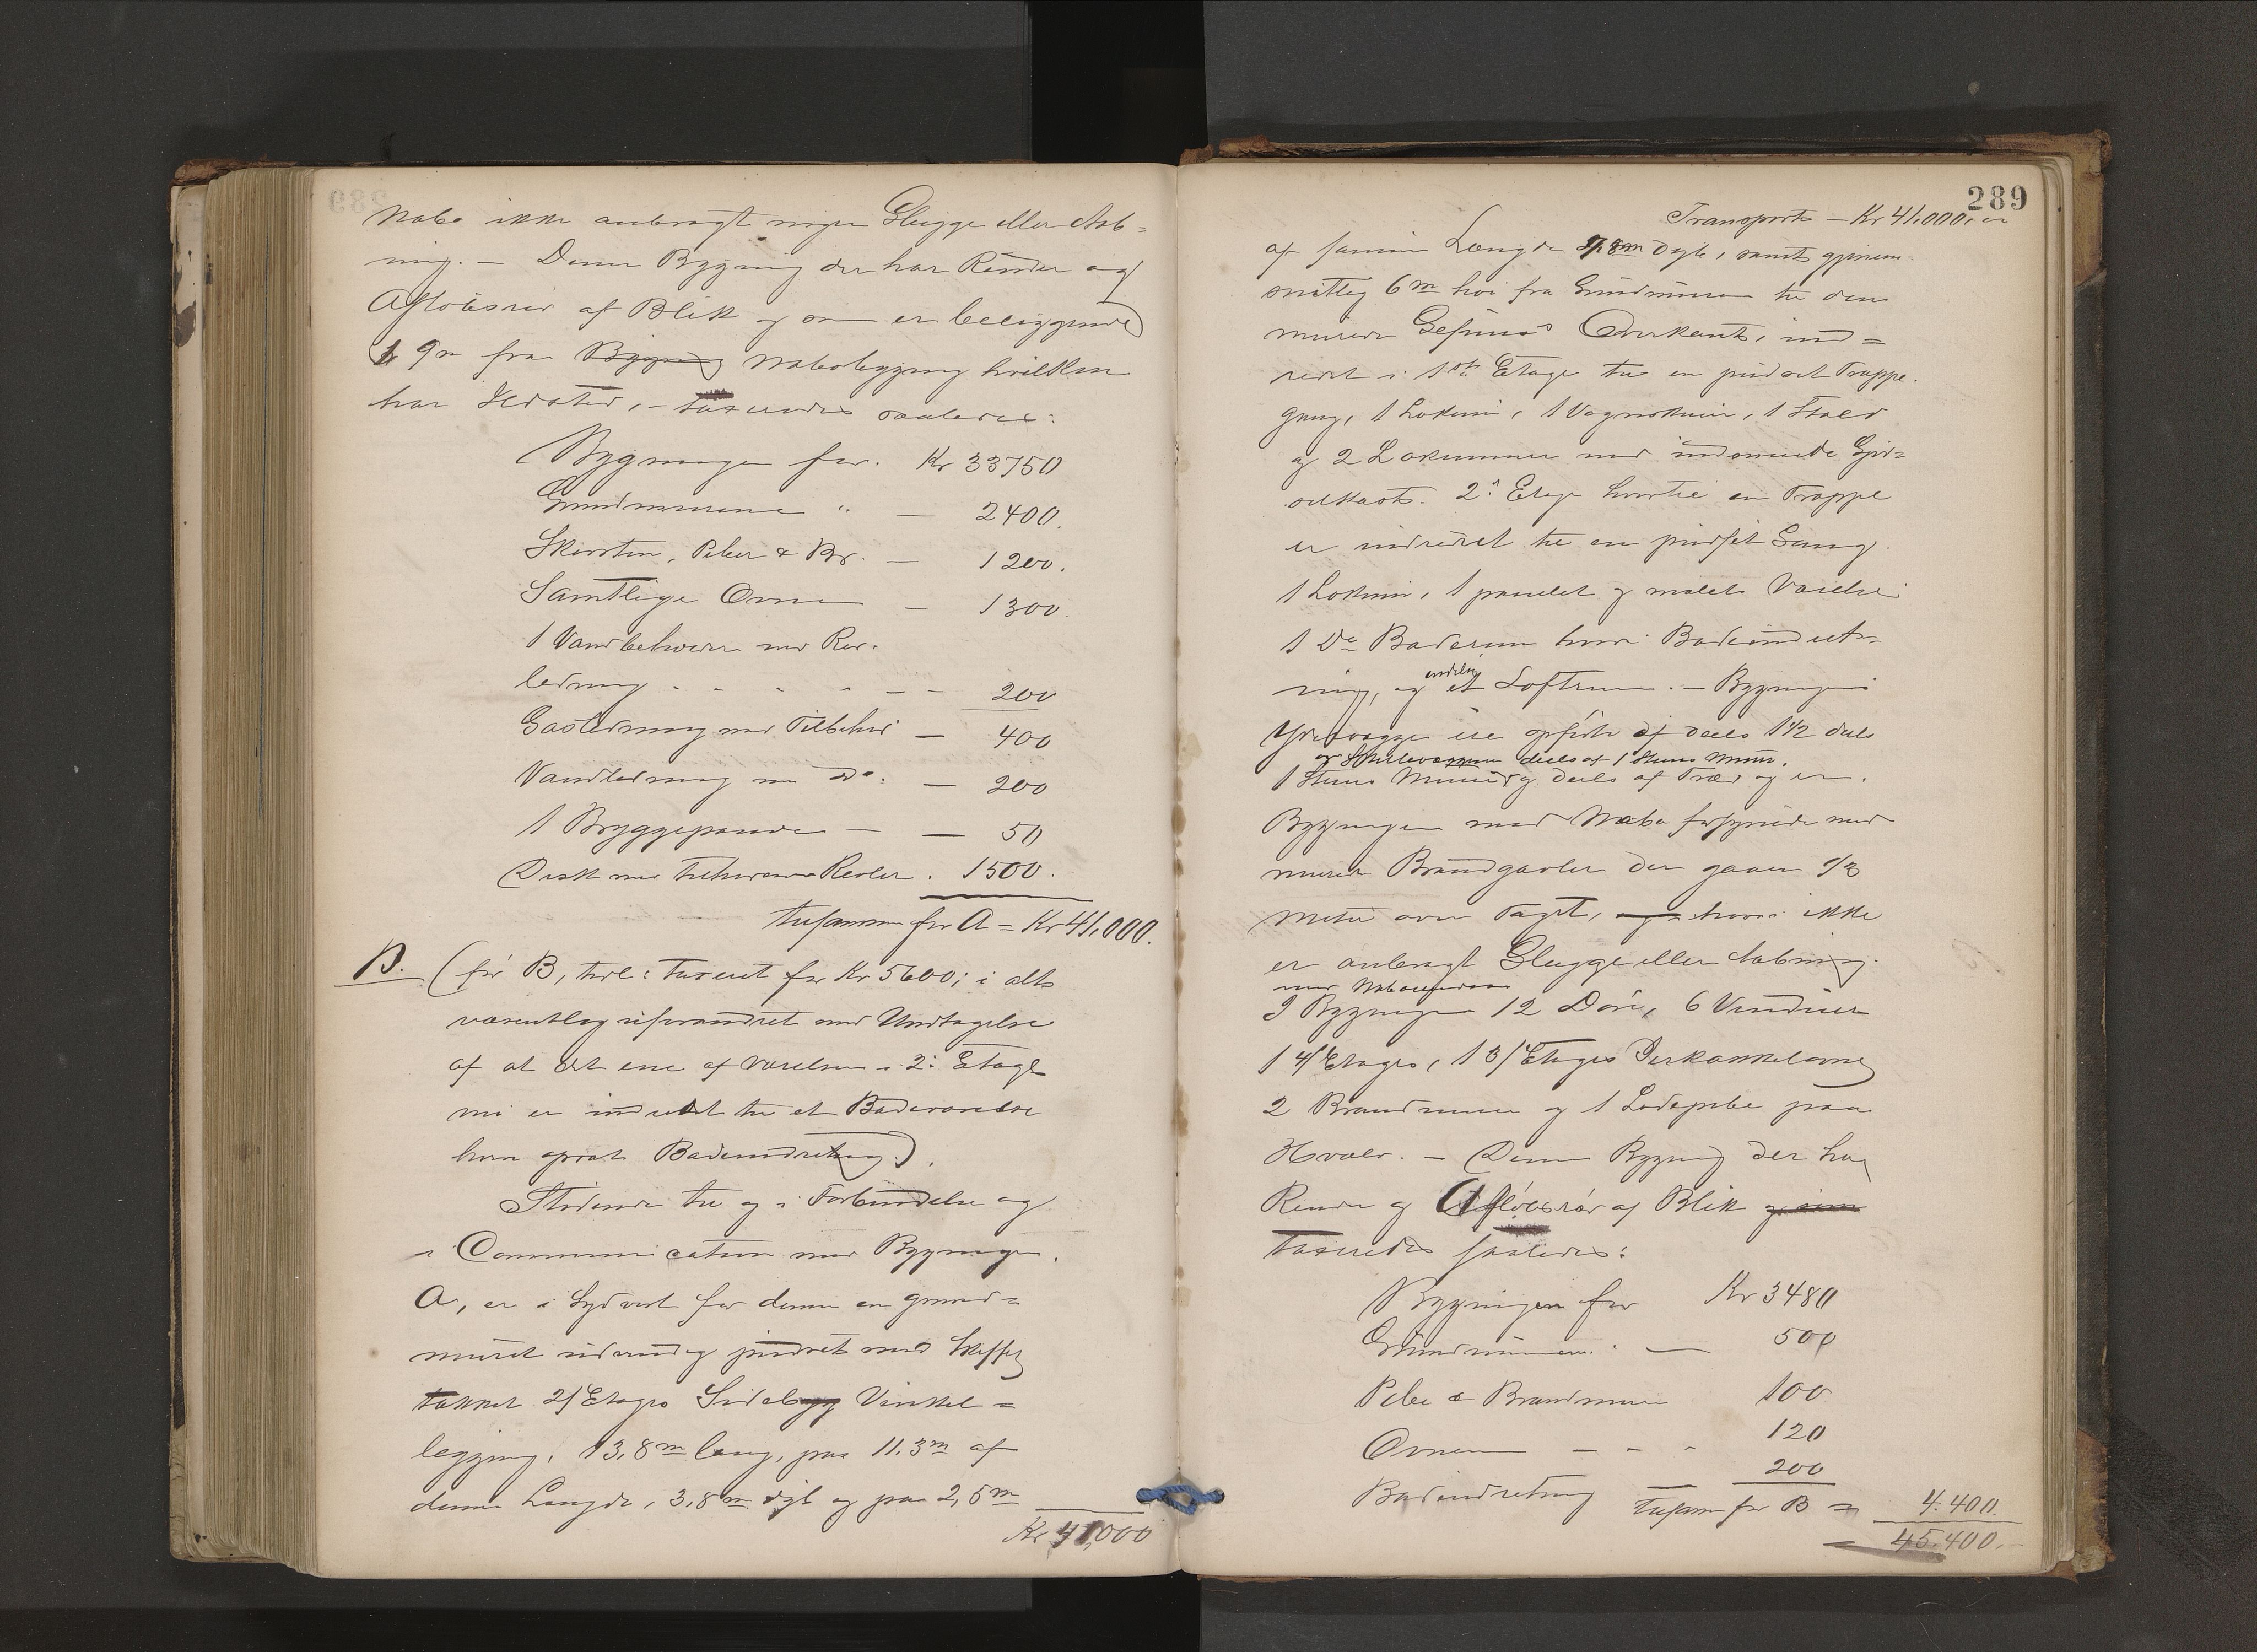 Nabo ikke anbragt nogen Glugge eller Aab=
ning. — Denne Bygning der har Render og
Afløbsrør af Blik og som er beliggende
9m fra Bygning Nabobygning hvilken
har Ildsted, — taxeredes saaledes:
Bygningen for. Kr 33750
Grundmurene " — 2400.
Skorsten, Piber & Br. — 1200.
Samtlige Ovne — 1300.
1 Vandbeholder med Rør-
ledning - - - - - - 200
Gasledning med Tilbehør — 400
Vandledning m Do. — 200
1 Bryggepande — — 50
Disk med tilhørende Reoler. 1500.
tilsammen for A = Kr 41,000.
B. (før B, taxeret for Kr 5600; i alt
væsentlig uforandret med Undtagelse
af at det ene af Værelserne i 2: Etage
nu er indredet til et Badeværelse
hvor opsat Badeindretning).
Stødende til og i Forbindelse og
i Communication med Bygningen
A, er i Sydvest for denne en grund=
muret udvendig pudset med Skiffer
tækket 2/Etages Sidebygg Vinkel=
bygging, 13,8m lang, paa 11.3m af
denne Længde, 3,8m dyb og paa 2,5m
Kr 41,000
289
Transport — Kr 41,000,
af samme Længde dyb, samt gjennem-
snitlig 6m høi fra Grundmuren til den
murede Gesims's Overkant, ind=
redet i 1ste Etage til en pudset Trappe-
gang, 1 Lokum, 1 Vognskuur, 1 Stald
og 2 Lokummer med indmurede Gjød-
selkast. 2: Etage hvortil en Trappe
er indredet til en pudset Gang
1 Lokum, 1 panelet og malet Værelse
1 Do Baderum hvori Badeindret-
ning, og endelig et Loftrum. — Bygningens
Ydrevægge ere opførte af deels 1 1/2 deels
og Skillevæggene deels af 1 Steens Muur,
1 Steens Muur og deels af Træ, og er
Bygningen mod Nabo forsynede med
murede Brandgavler der gaaer 1/3
Meter over Taget, og hvori ikke
er anbragt Glugge eller Aabning.
mod Naboeiendom
I Bygningen 12 Døre, 6 Vinduer
1 4/Etages, 1 3/Etages Jernkakkelovne
2 Brandmure og 1 Lodepibe paa
Hvælv. — Denne Bygning der har
Render og Afløbsrør af Blik og som
taxeredes saaledes:
Bygningen for Kr 3480
Grundmuren. — 500
Pibe & Brandmure 100
Ovnene — - - 120
Badeindretning — 200
tilsam for B = 4.400.
45.400.—